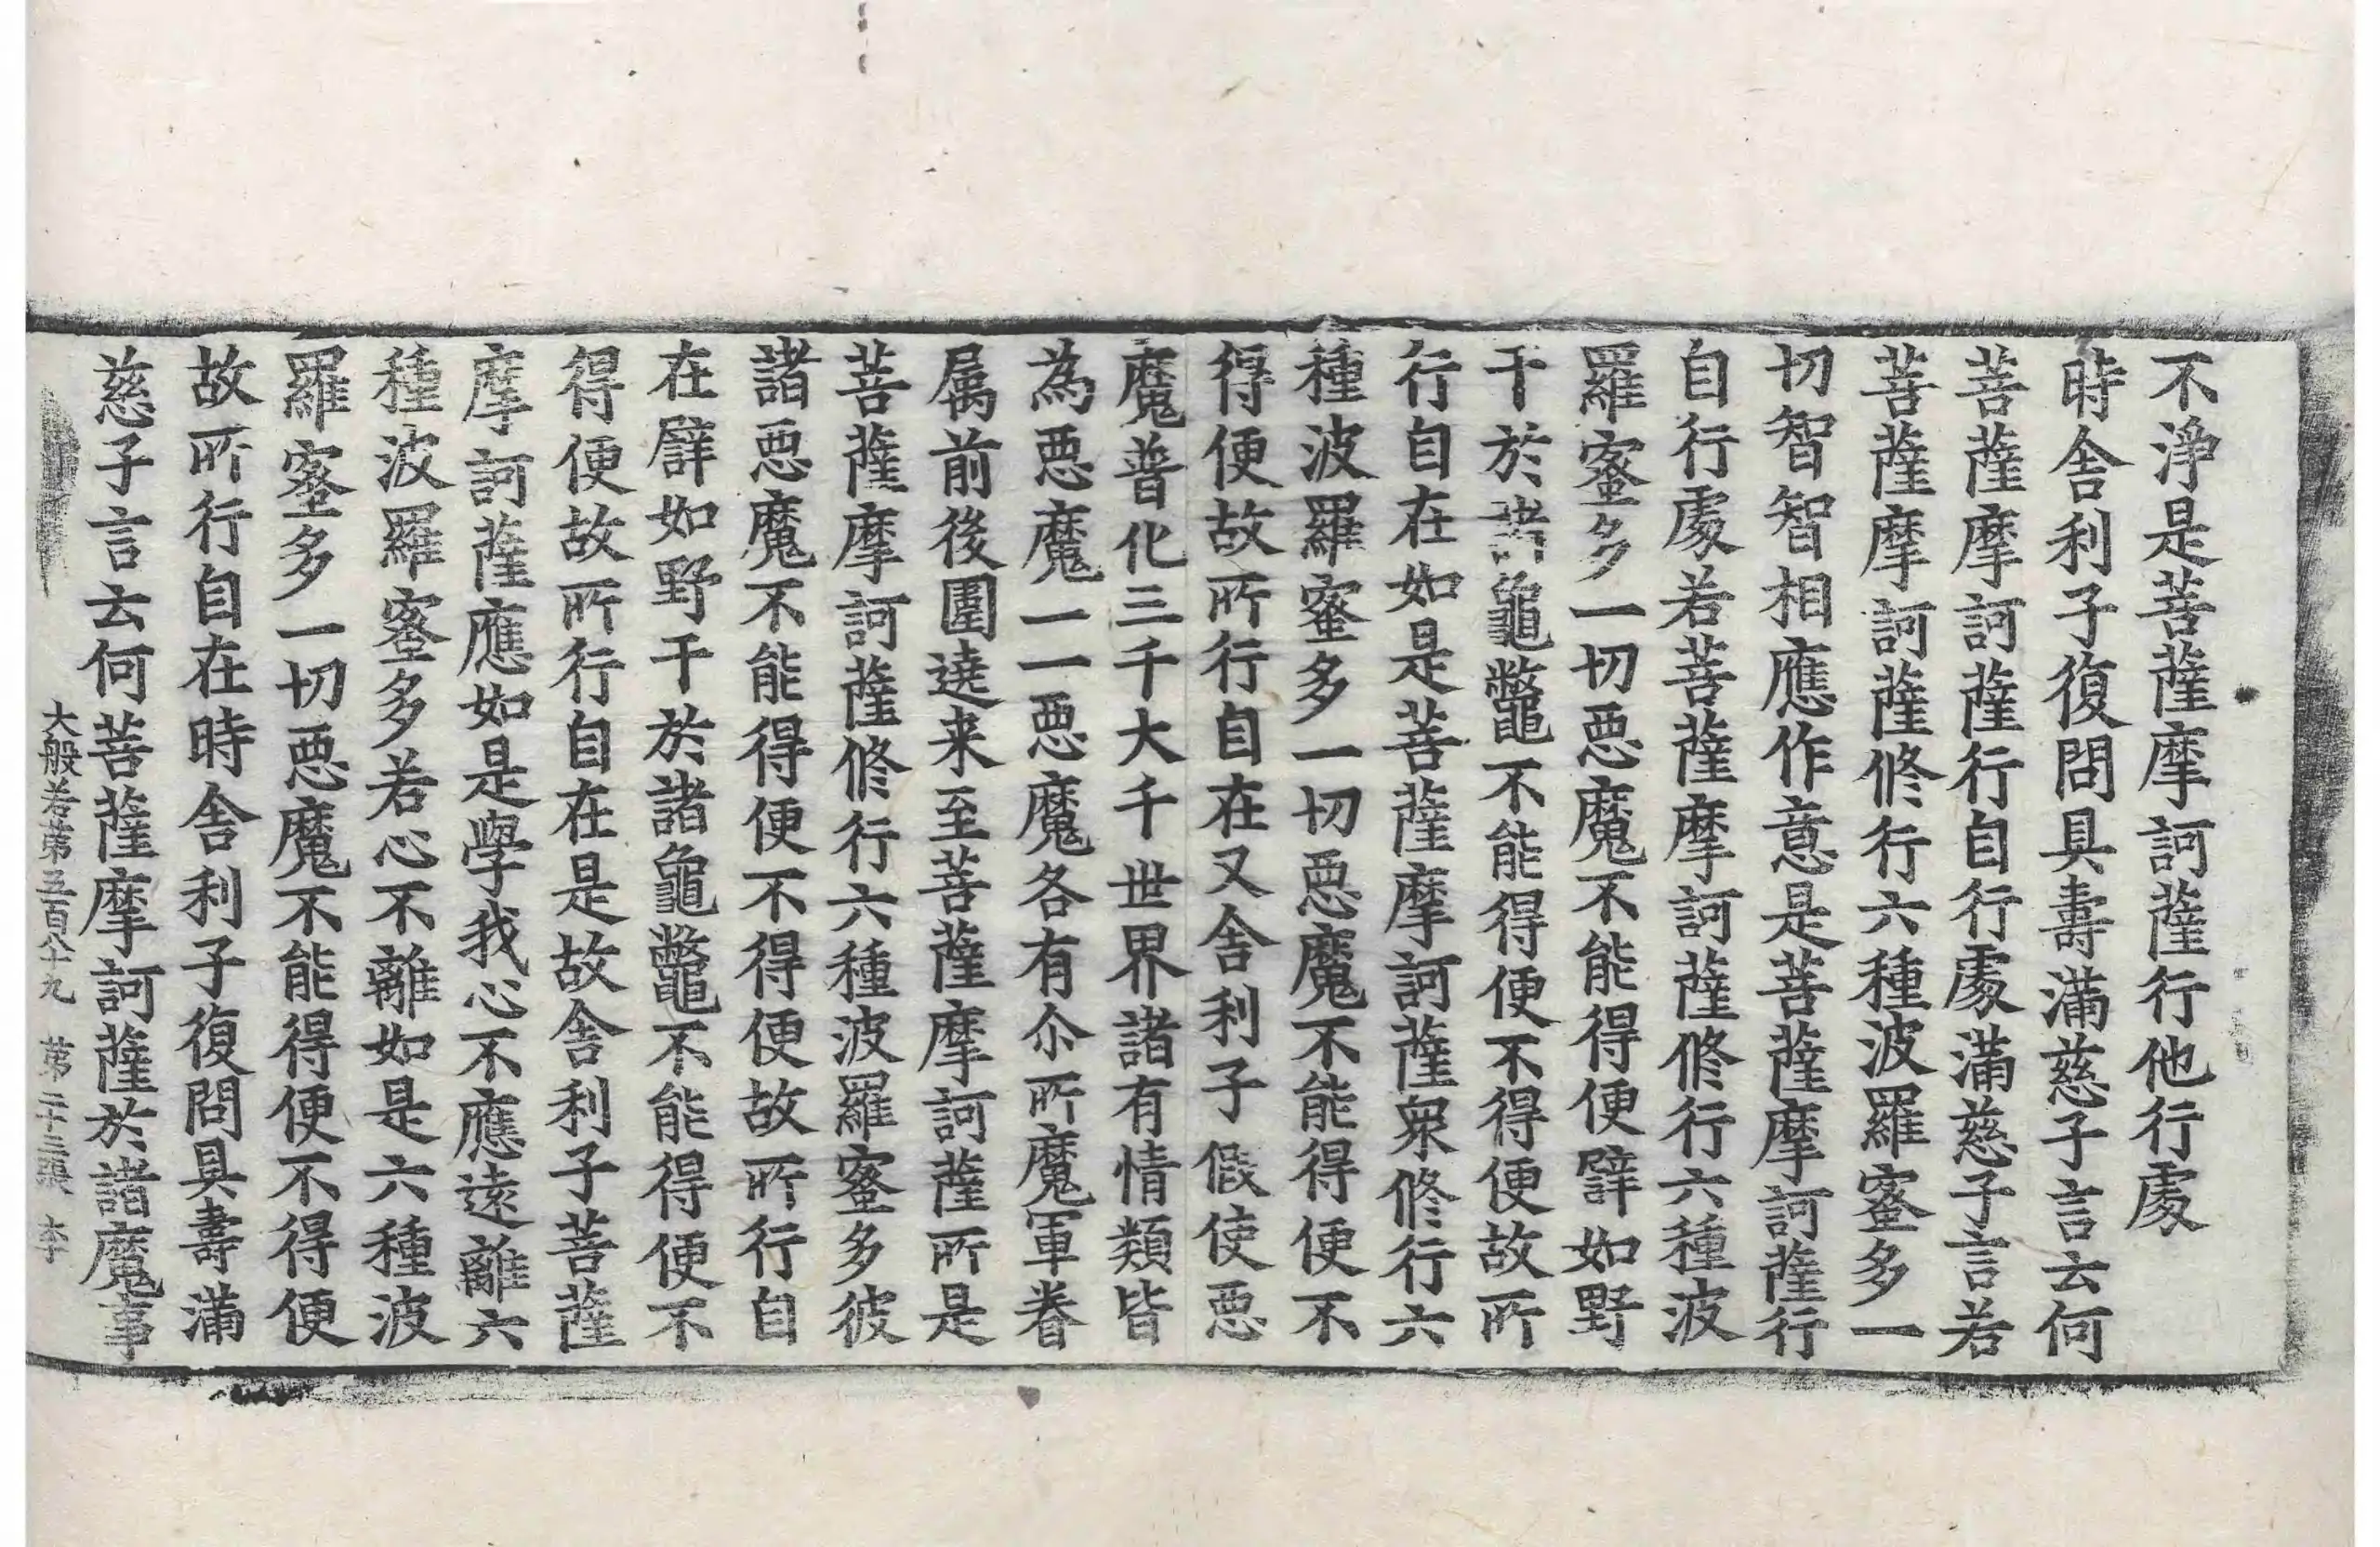 不淨是菩薩摩訶薩行他行處
時舍利子復問具壽滿慈子言云何
菩薩摩訶薩行自行處滿慈子言若
菩薩摩訶薩修行六種波羅蜜多一
切智智相應作意是菩薩摩訶薩行
自行處若菩薩摩訶薩修行六種波
羅蜜多一切惡魔不能得便譬如野
干於諸龜鼈不能得便不得便故所
行自在如是菩薩摩訶薩衆修行六
種波羅蜜多一切惡魔不能得便不
得便故所行自在又舍利子假使惡
魔普化三千大千世界諸有情類皆
為惡魔一一惡魔各有尒所魔軍眷
属前後圍遶来至菩薩摩訶薩所是
菩薩摩訶薩修行六種波羅蜜多彼
諸惡魔不能得便不得便故所行自
在譬如野干於諸龜鼈不能得便不
得便故所行自在是故舍利子菩薩
摩訶薩應如是學我心不應遠離六
種波羅蜜多若心不離如是六種波
羅蜜多一切惡魔不能得便不得便
故所行自在時舍利子復問具壽滿
慈子言云何菩薩摩訶薩於諸魔事
大般若第五百八十九 第二十三張